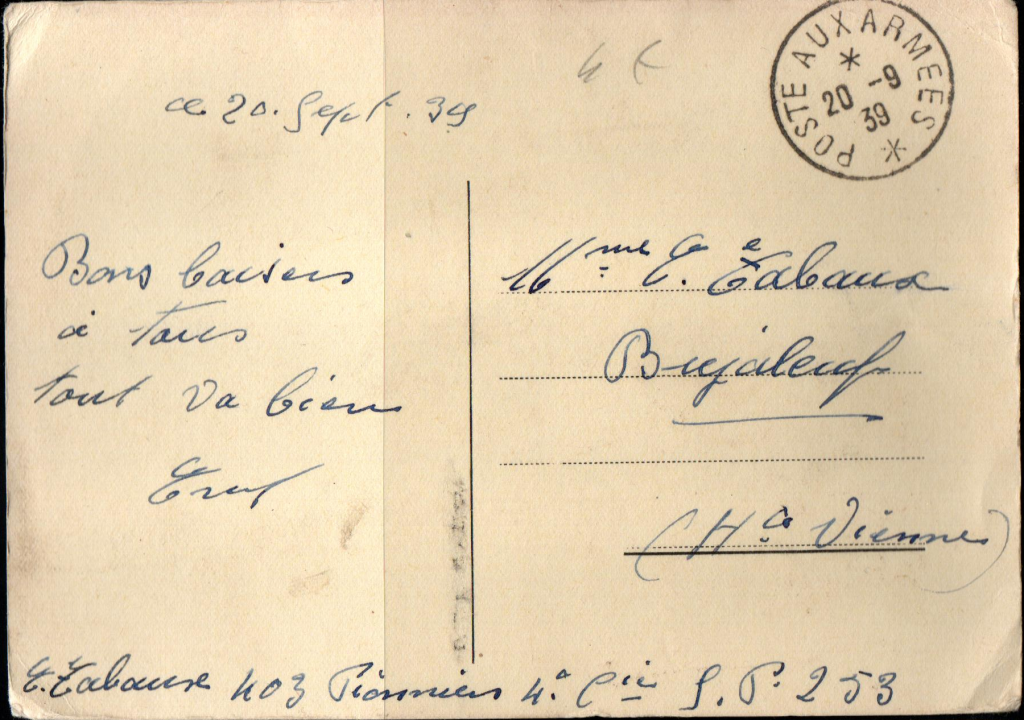 ce 20. Sept. 39
Bons baisers
à tous
tout va bien
POSTE AUX ARMEES
20 -9
39
Mme E. Tabaux
Bujaleuf
(Hte Vienne)
E. Tabaux 403 Pionniers 4e Cie S. P. 253